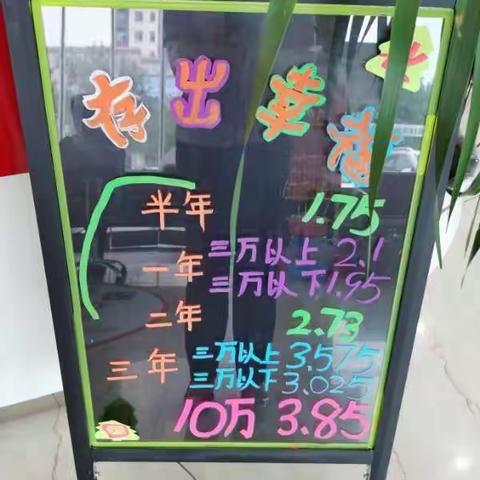 存出幸福
半年 1.75
一年 三万以上 2.1
三万以下 1.95
二年 2.73
三年 三万以上 3.575
三万以下 3.025
10万 3.85